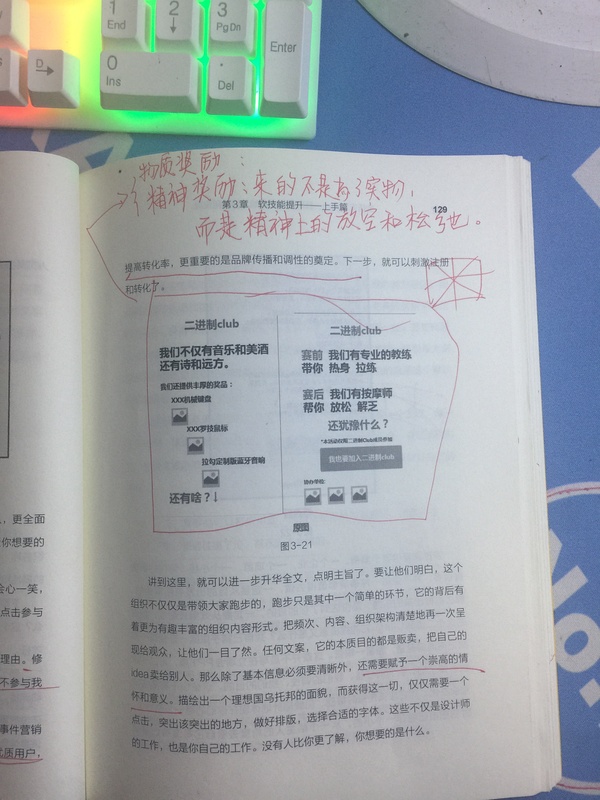 1
End
2
↓
3
Pg Dn
Enter
D
0
Ins
.
Del
物质奖励：
精神奖励：来的不是为了实物，
而是精神上的放空和松弛。
第3章 软技能提升——上手篇
129
提高转化率，更重要的是品牌传播和调性的奠定。下一步，就可以刺激注册
和转化了。
二进制club
我们不仅有音乐和美酒
还有诗和远方。
我们还提供丰厚的奖品：
XXX机械键盘
XXX罗技鼠标
拉勾定制版蓝牙音响
还有啥？↓
二进制club
赛前 我们有专业的教练
带你 热身 拉练
赛后 我们有按摩师
帮你 放松 解乏
还犹豫什么？
我也要加入二进制club
原图
图3-21
讲到这里，就可以进一步升华全文，点明主旨了。要让他们明白，这个
组织不仅仅是带领大家跑步的，跑步只是其中一个简单的环节，它的背后有
着更为有趣丰富的组织内容形式。把频次、内容、组织架构清楚地再一次呈
现给观众，让他们一目了然。任何文案，它的本质目的都是贩卖，把自己的
idea卖给别人。那么除了基本信息必须要清晰外，还需要赋予一个崇高的情
怀和意义。描绘出一个理想国乌托邦的面貌，而获得这一切，仅仅需要一个
点击，突出该突出的地方，做好排版，选择合适的字体。这些不仅是设计师
的工作，也是你自己的工作。没有人比你更了解，你想要的是什么。
，更全面
你想要的
会心一笑，
点击参与
理由。修
不参与我
事件营销
优质用户，
No.